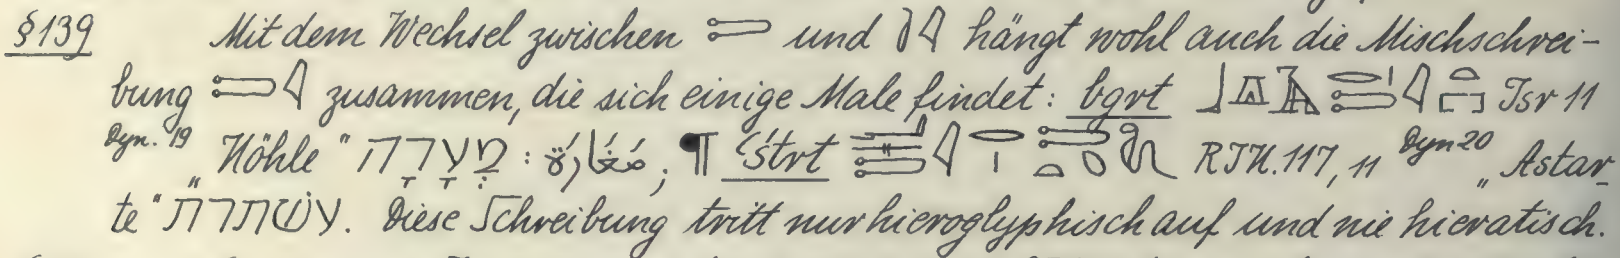 §139 Mit dem Wechsel zwischen und hängt wohl auch die Mischschrei-
bung zusammen, die sich einige Male findet: bgrt Isr 11
Dyn. 19 „Höhle" מְעָרָה : مَغَارَة; ¶ ʿśtrt RIK. 117, 11 Dyn 20 „Astar-
te" עשתרת. Diese Schreibung tritt nur hieroglyphisch auf und nie hieratisch.